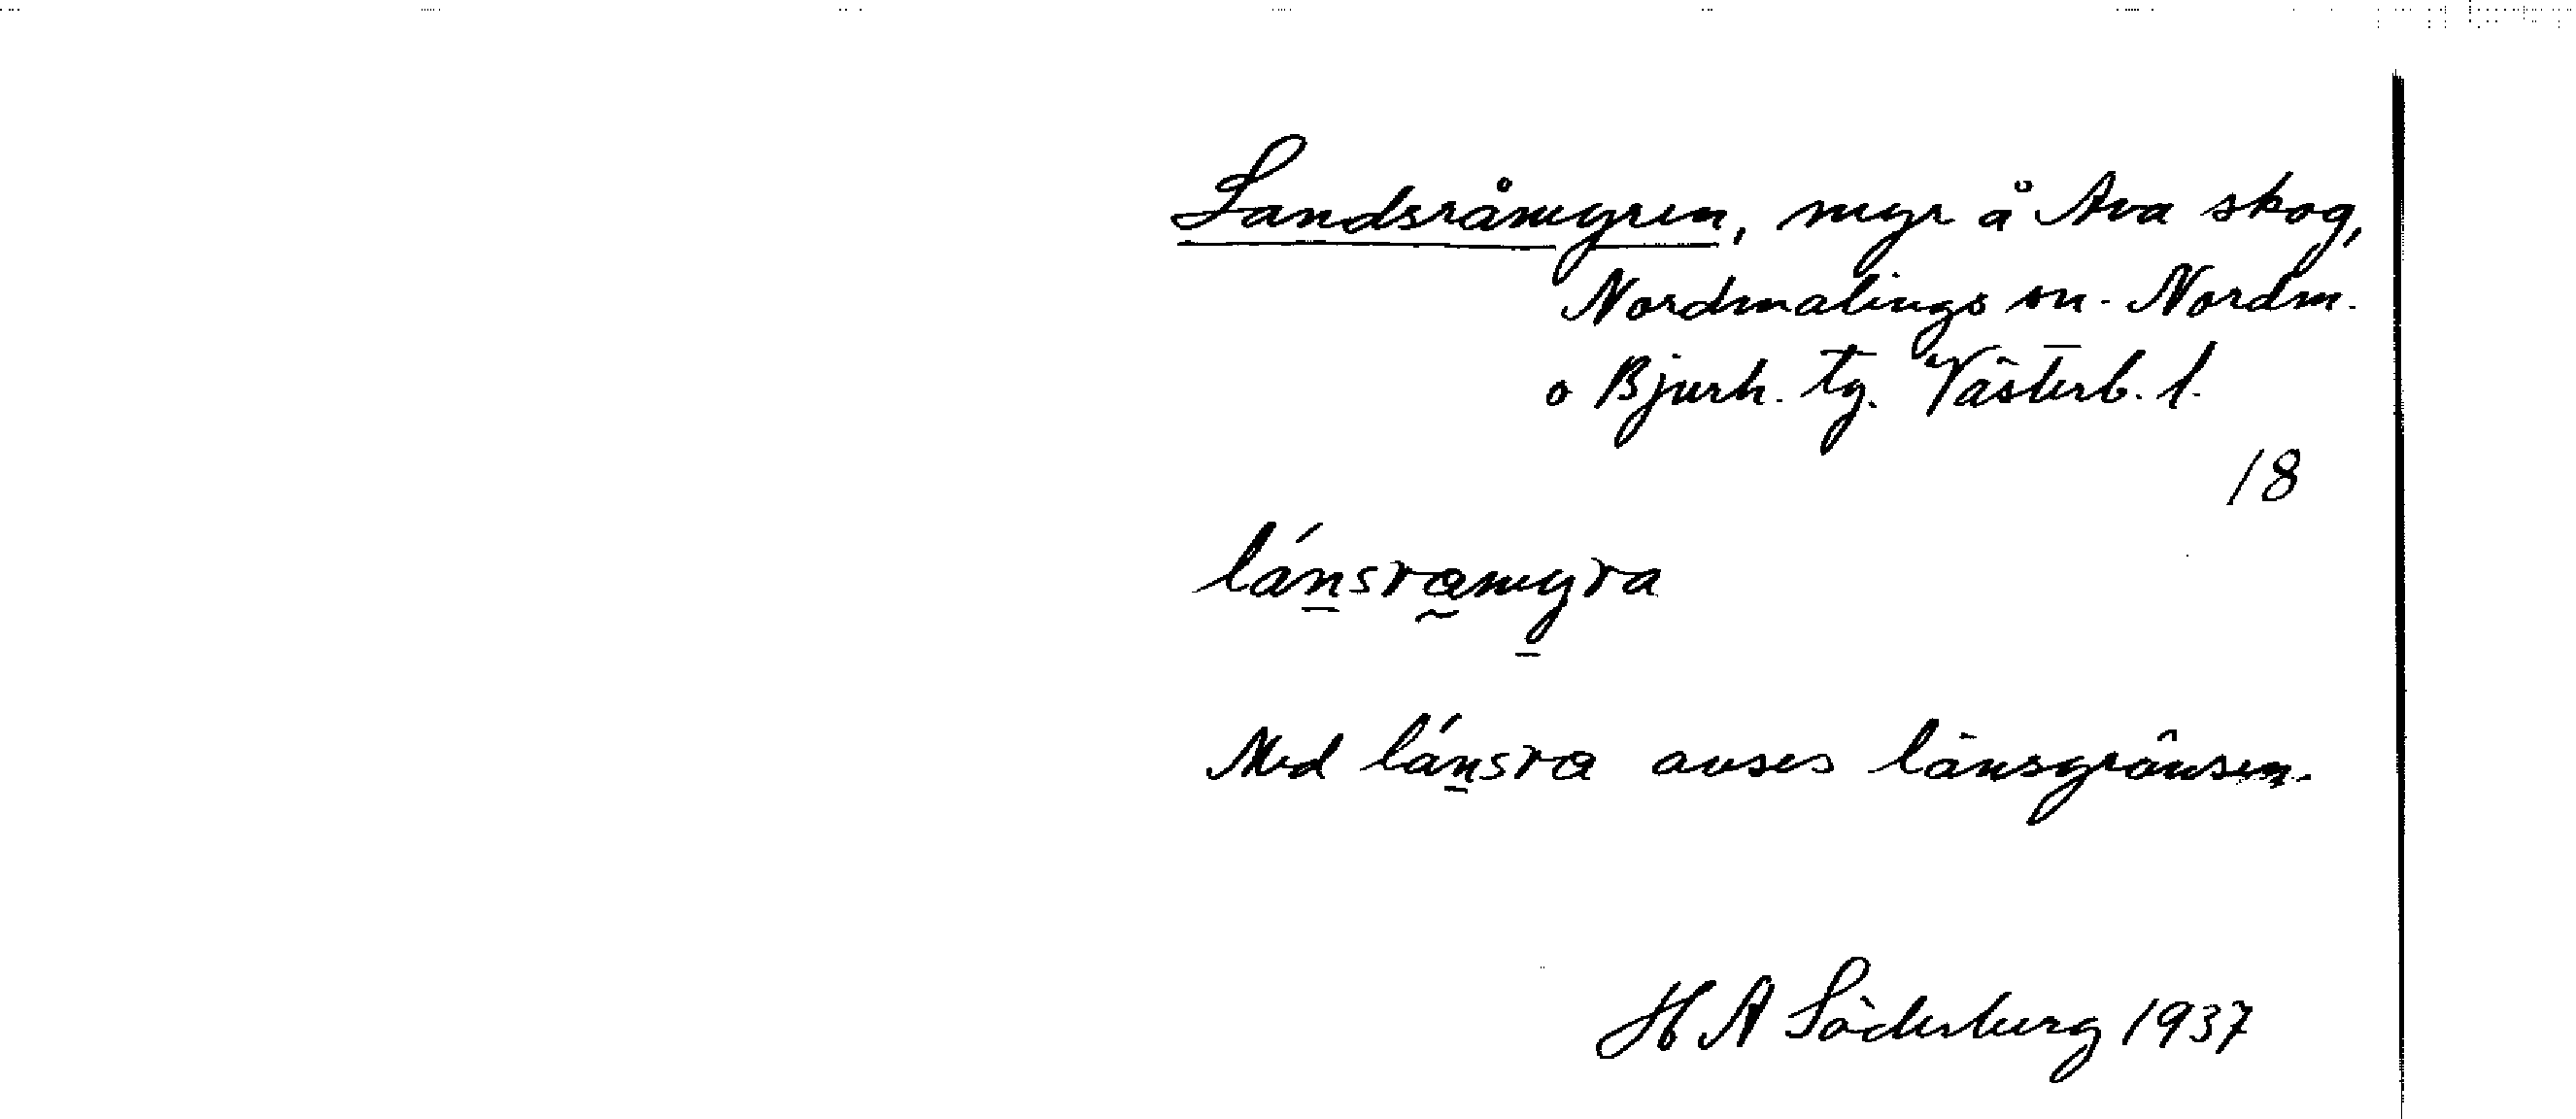 Landsråmyren, myr å Ava skog,
Nordmalings sn. Nordm.
o Bjurh. tg. Västerb. l.
18
lánsramyra
Med lánsra avses länsgränsen.
H A Söderberg 1937